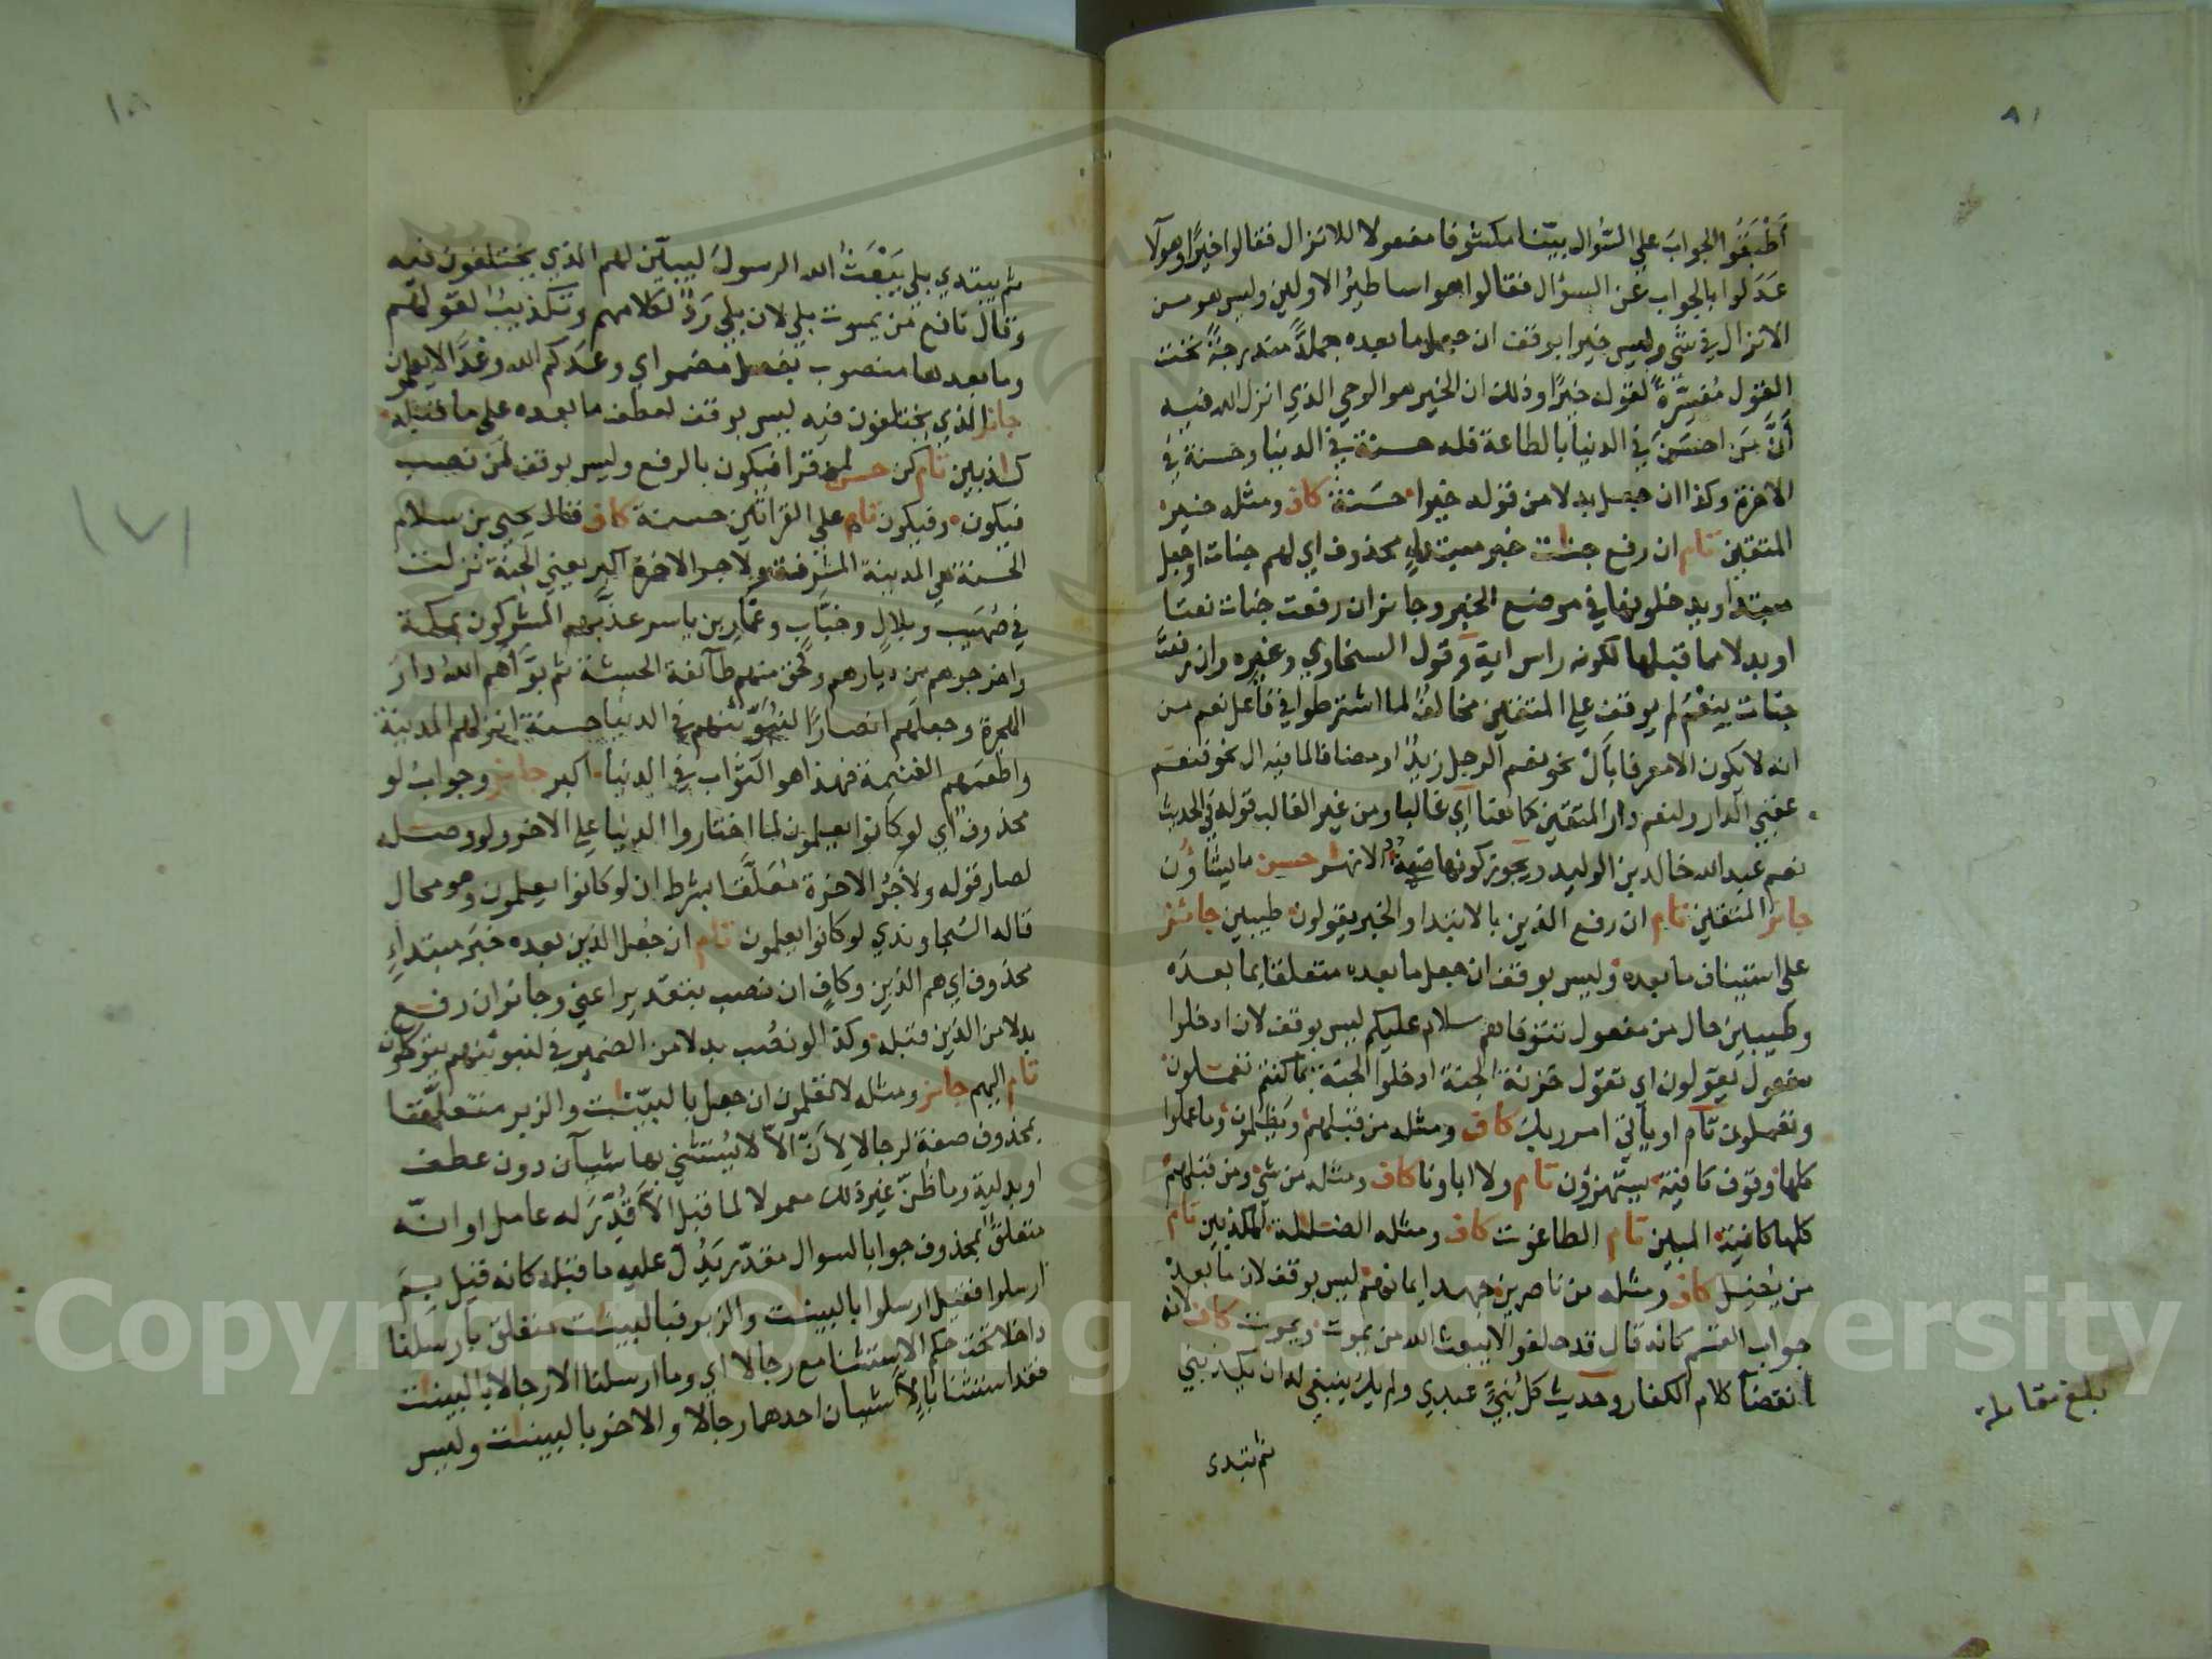 أطبقوا الجواب علي السؤال بيّنا مكشوفا مفعولا للانزال فقالوا خيرًا وهؤلا
عَدَلوا بالجواب عن السؤال فقالوا هو اساطيرُ الاولين وليس هو من
الانزال في شي وليس خيرا بوقف ان جعل ما بعده جملةً مندرجةً تحت
القول مُفسِّرةً لقوله خيرًا وذلك ان الخير هو الوحي الذي انزل الله فيه
أنّ مَن احسَنَ في الدنيا بالطاعة فله حسنة في الدنيا وحسنة في
الاخرة وكذا ان جعل بدلا من قوله خيرا حسَنة كاف ومثله خير
المتقين تام ان رفع جنات خبر مبتداءٍ محذوف اي لهم جنات او جعل
مبتدا ويدخلونها في موضع الخبر وجائز ان رفعت جنات نعتا
او بدلا مما قبلها لكونه راس اية وقول السخاوي وغيره وان رفعت
جنات بنِعْمَ لم يوقف علي المتقين مخالفُ لما اشترطوا في فاعل نعم من
انه لا يكون الا معرفا بأل نحو نعم الرجل زيدُ او مضافا لما فيه ال نحو فنعم
عقبي الدار ولنعم دار المتقين كما هنا اي غالبا ومن غير الغالب قوله في الحديث
نعم عبد الله خالد بن الوليد ويجوز كونها الانهر حسن ما يشاؤن
جائز المتقين تام ان رفع الذين بالابتدا والخبر يقولون طيبين جائز
علي استيناف ما بعده وليس بوقف ان جعل ما بعده متعلقا بما بعده
وطيبين حال من مفعول تتوفاهم سلام عليكم ليس بوقف لان ادخلوا
مفعول يقولون اي تقول خزنة الجنة ادخلوا الجنة بما كنتم تعملون
وتعملون تام او يأتيَ امر ربك كاف ومثله من قبلهم ويظلمون وما عملوا
كلها وقوف كافية يستهزؤن تام ولا اباونا كاف ومثله من شي ومن قبلهم
كلها كافية المبين تام الطاغوت كاف ومثله الضللة المكذبين تام
من يُضِل كاف ومثله من ناصرين جهد ايمانهم ليس بوقف لان ما بعده
جواب القسم كانه قال قد حلفوا لا يبعث الله من يموت ويموت كاف لانه
انقضآ كلام الكفار وحديث كل نبيّ عبدي ولم يك ينبغي له ان يكذبني
ثم يبتدى
بلغ مقابلة
ثم يبتدي بلي يَبْعَثُ الله الرسولَ ليبيّن لهم الذي يختلفون فيه
وقال نافع مَن يموت بلي لان بلي رَدُّ لكلامهم وتكذيبُ لقولهم
وما بعدها منصوب بفعل مضمر اي وعدكم الله وعْدًا لا يعلمون
جائز الذي يختلفون فيه ليس بوقف لعطف ما بعده علي ما قبله
كاذبين تام كن حسن لمن قرا فيكون بالرفع وليس بوقف لمن نصب
فيكون وفيكون تام علي القراتين حسنة كاف قال يحيي بن سلام
الحسنة هي المدينة المشرفة ولاجر الاخرة اكبر يعني الجنة نزلت
في صُهَيب وبلالٍ وخبَّاب وعمّار بن ياسر عذّبهم المشركون بمكة
واخرجوهم من ديارهم ولحق منهم طآئفة الحبشة ثم بوّأهم الله دارَ
الهجرة وجعلهم انصارًا لنبوِّئنهم في الدنيا حسنة انزلهم المدينة
واطعمهم الغنيمة فهذا هو الثواب في الدنيا اكبر جائز وجوابُ لو
محذوف اي لو كانوا يعلمون لما اختاروا الدنيا علي الاخرة ولو وصله
لصار قوله ولأجرُ الاخرة مُعَلَّقا بشرط ان لو كانوا يعلمون وهو محال
قاله السّجاوندي لو كانوا يعلمون تام ان جعل الذين بعده خبرَ مبتداءٍ
محذوف اي هم الذين وكافٍ ان نصب بتقدير اعني وجائز ان رفع
بدلا من الذين قبله وكذا لو نصب بدلا من الضمير في لنبوئنهم يتوكلون
تام اليهم جائز ومثله لا تعلمون ان جعل بالبينت والزبر متعلِّقا
بمحذوف صفة لرجالا لِأنّ الاّ لا يُستثني بها شيآن دون عطف
او بدلية وما ظنّ غير ذلك معمولا لما قبل الاّ قُدِّرَ له عامل او انه
متعلقُ بمحذوف جوابا لسوال مقدّر يَدُلّ عليه ما قبله كانه قيل بِمَ
ارسلوا فقيل ارسلوا بالبينت والزبر فبالبينت متعلق بأرسلنا
داخلا تحت حكم الاستثنا مع رجالا اي وما ارسلنا الا رجالا بالبينت
فقد استثنا بإلاّ شيان احدهما رجالا والاخر بالبينت وليس